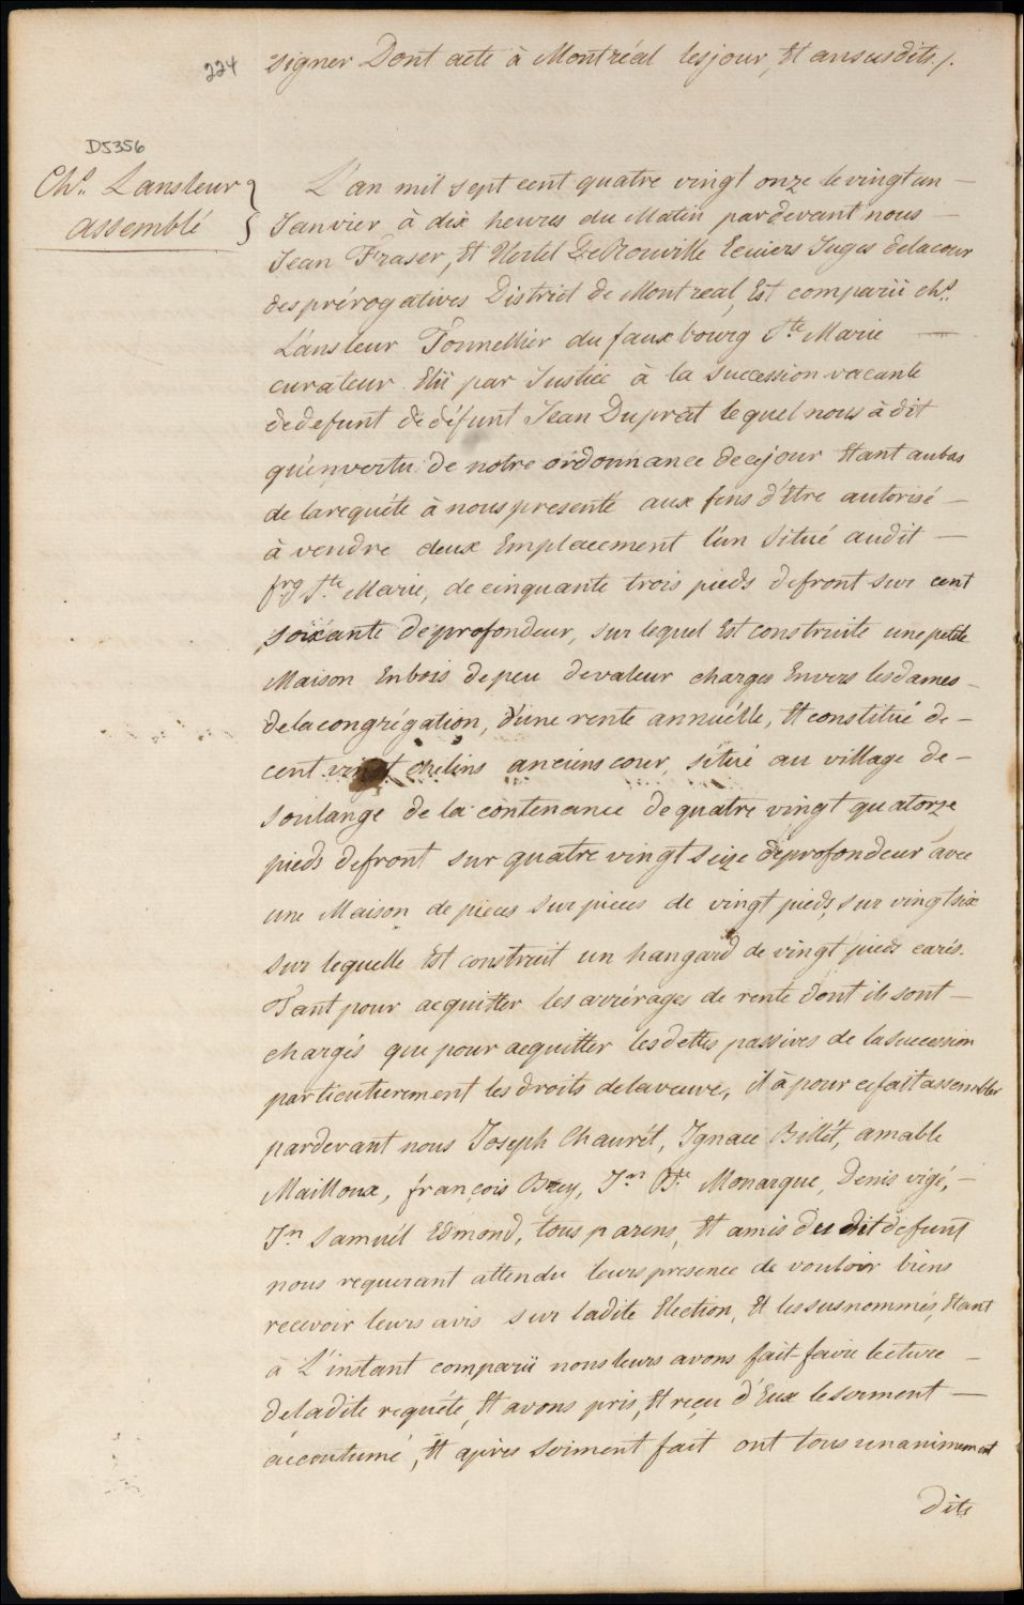 224 signer Dont acte à Montréal lesjour, Et ansusdits ./.
D5356
Chs. Lansleur
assemblé
L'an mil sept cent quatre vingt onze le vingt un —
Janvier à dix heures du Matin pardevant nous —
Jean Fraser, Et Hertel DeRouville Ecuiers Juges delacour
desprérogatives District de Montreal, Est comparü chs.
Lansleur Tonnellier du fauxbourg Ste Marie —
curateur Elü par Justice à la Succession vacante
dedefunt de défunt Jean Duprat lequel nous à dit
qu'envertu de notre ordonnance decejour Etant aubas
de larequéte à nouspresenté aux fins d'être autorisé —
à vendre deux Emplacement l'un Situé audit —
frg Ste Marie, de cinquante trois pieds defront sur cent
soixante deprofondeur, sur lequel Est construite unepetite
Maison Enbois depeu devaleur charges Envers lesdames —
delacongrégation, d'une rente annuélle, Et constitué de —
cent vingt chelins anciens cour, sitüé au village de —
soulange de la contenance de quatre vingt quatorze
pieds defront sur quatre vingt seize deprofondeur avec
une Maison de pieces sur pieces de vingt pieds sur vingtsix
sur lequelle Est construit un hangard de vingt pieds carés.
Tant pour acquitter les arrérages de rente dont ils sont —
chargés que pour acquitter lesdettes passives de lasuccession
particulierement les droits delaveuve, il à pour cefait assembler
pardevant nous Joseph Chaurét, Ignace Billét, amable
Mailloux, françois Brey, Jn Bte Monarque, Denis vigé, —
Jn Samuél Edmond, tous parens, Et amis du dit defunt
nous requerant attendu leurs presence de vouloir biens
recevoir leurs avis sur ladite Election, Et lessusnommés, Etant
à L'instant comparü nous leurs avons fait faire lecture —
deladite requéte, Et avons pris, Et reçu d'Eux leserment —
accoutumé, Et après Serment fait ont tous unanimement
dits